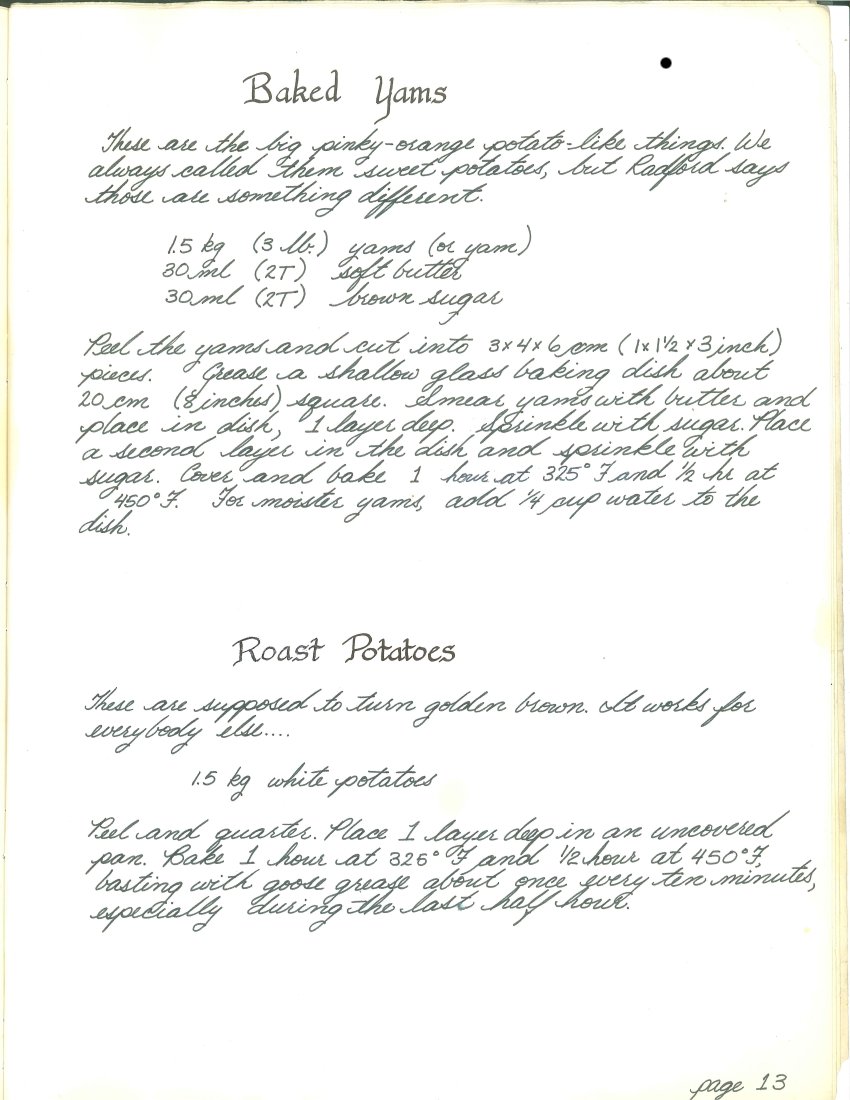 Baked Yams
These are the big pinky-orange potato-like things. We
always called them sweet potatoes, but Radford says
those are something different.
1.5 kg (3 lb.) yams (or yam)
30 ml (2T) soft butter
30 ml (2T) brown sugar
Peel the yams and cut into 3x4x6 cm (1x1½x3 inch)
pieces. Grease a shallow glass baking dish about
20 cm (8 inches) square. Smear yams with butter and
place in dish, 1 layer deep. Sprinkle with sugar. Place
a second layer in the dish and sprinkle with
sugar. Cover and bake 1 hour at 325°F and ½ hr at
450°F. For moister yams, add ¼ cup water to the
dish.
Roast Potatoes
These are supposed to turn golden brown. It works for
everybody else....
1.5 kg white potatoes
Peel and quarter. Place 1 layer deep in an uncovered
pan. Bake 1 hour at 325°F and ½ hour at 450°F,
basting with goose grease about once every ten minutes,
especially during the last half hour.
page 13